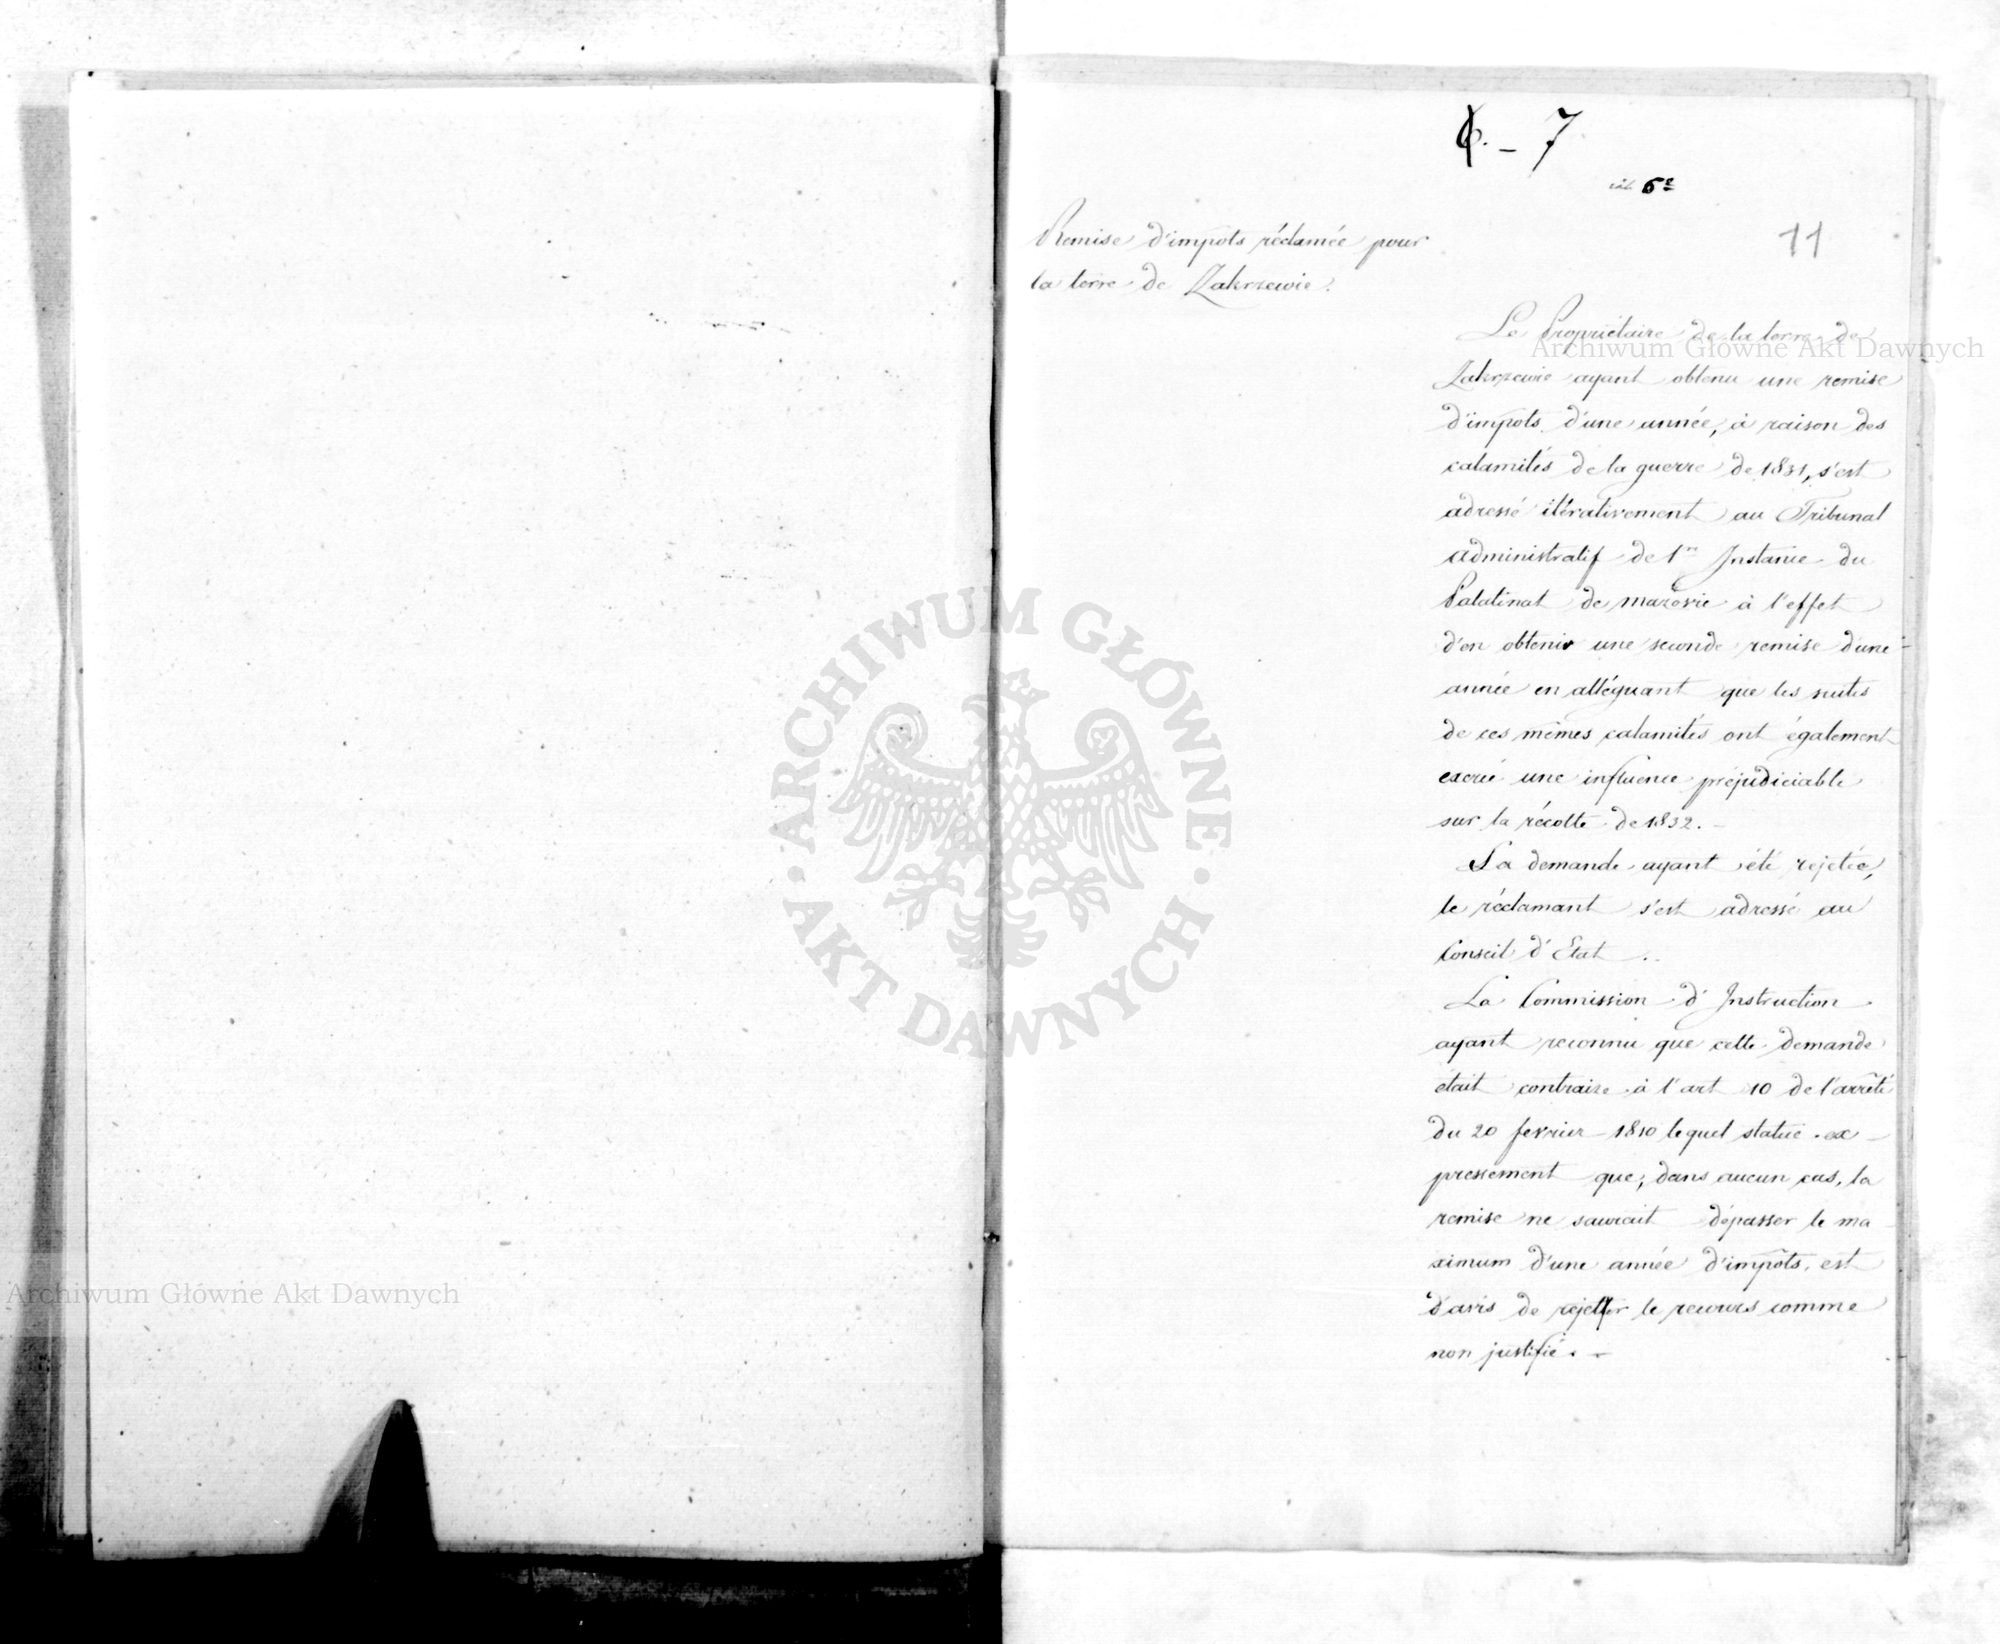 6. - 7
6e
11
Remise d'impots réclamée pour
la terre de Zakrzewie.
Le Propriétaire de la terre de
Zakrzewie ayant obtenu une remise
d'impots d'une année, à raison des
calamités de la guerre de 1831, s'est
adressé itérativement au Tribunal
administratif de 1re Instance du
Palatinat de mazovie à l'effet
d'en obtenir une seconde remise d'une
année en alléguant que les suites
de ces mêmes calamités ont également
exercé une influence préjudiciable
sur la récolte de 1832. -
Sa demande ayant été rejetée,
le réclamant s'est adressé au
Conseil d'Etat
La Commission d'Instruction
ayant reconnu que cette demande
était contraire à l'art 10 de l'arrêté
du 20 fevrier 1810 lequel statue ex-
pressement que, dans aucun cas, la
remise ne saurait dépasser le ma
ximum d'une année d'impôts, est
d'avis de rejetter le recours comme
non justifié. -
Archiwum Główne Akt Dawnych
Archiwum Główne Akt Dawnych
ARCHIWUM GŁÓWNE
AKT DAWNYCH